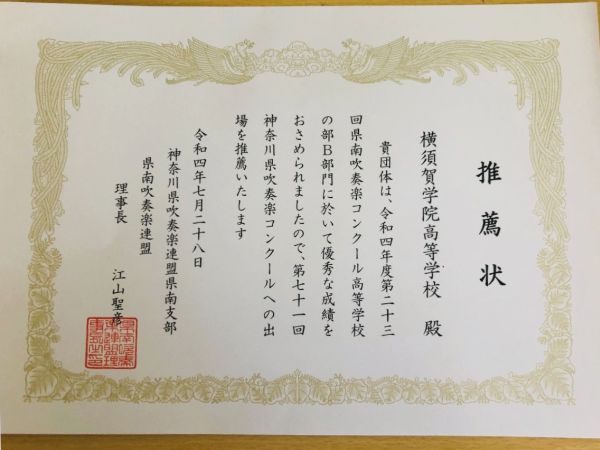 推薦状
横須賀学院高等学校 殿
貴団体は、令和四年度第二十三
回県南吹奏楽コンクール高等学校
の部B部門に於いて優秀な成績を
おさめられましたので、第七十一回
神奈川県吹奏楽コンクールへの出
場を推薦いたします
令和四年七月二十八日
神奈川県吹奏楽連盟県南支部
県南吹奏楽連盟
理事長 江山聖彦